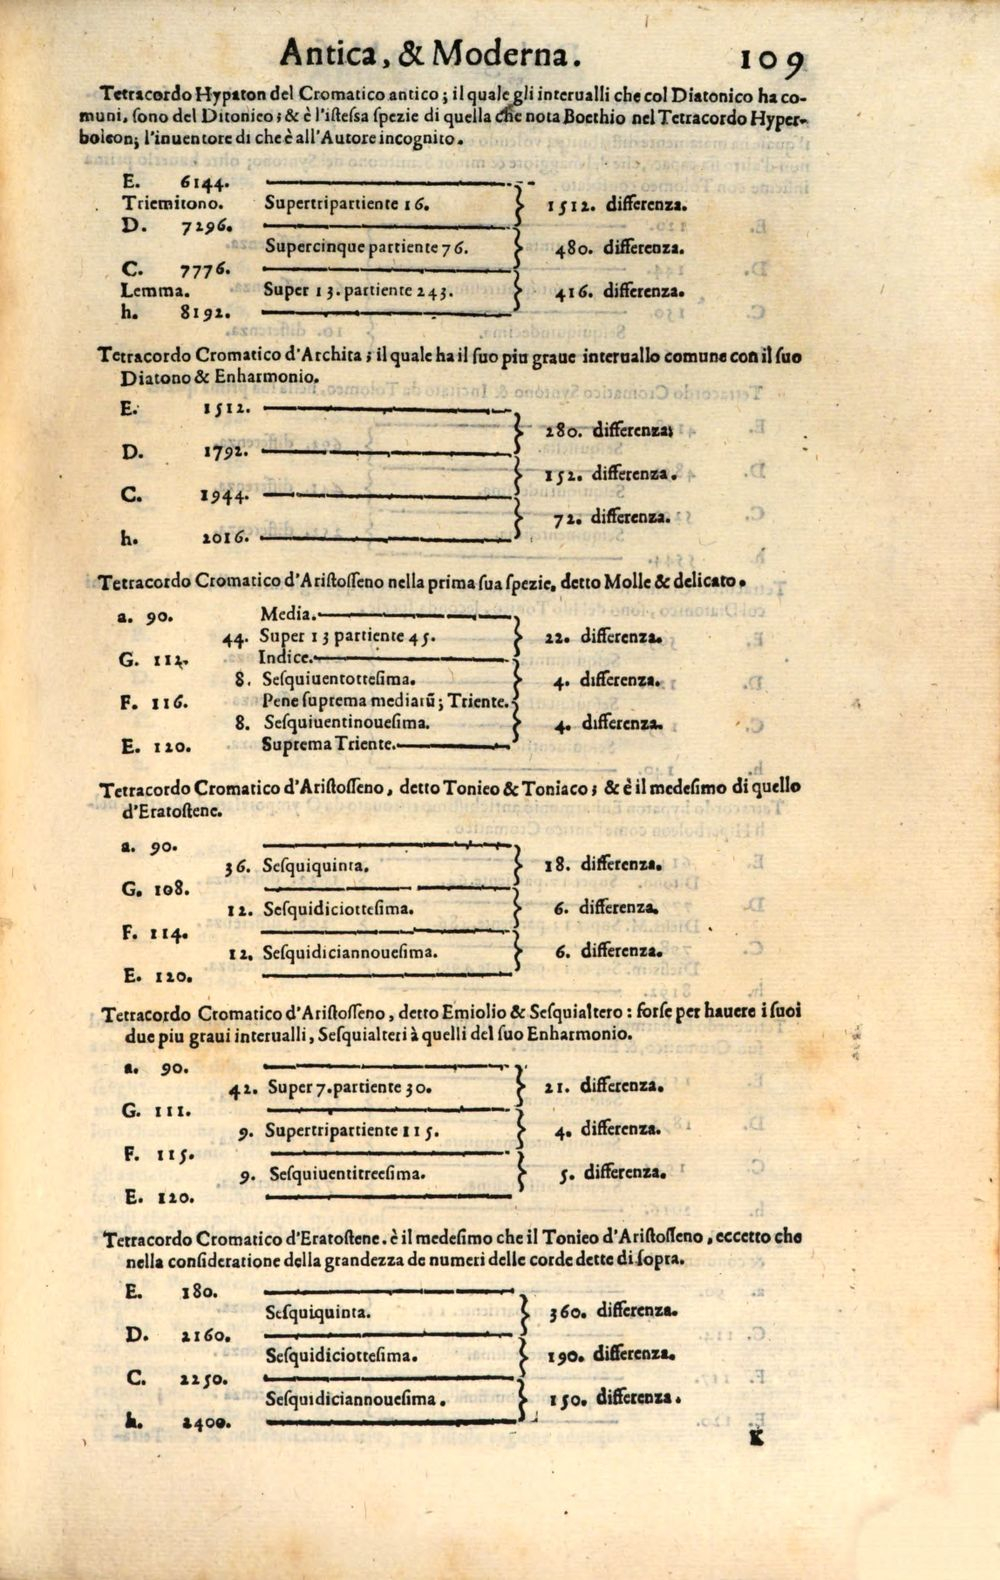 Antica, & Moderna. 109
Tetracordo Hypaton del Cromatico antico; il quale gli interualli che col Diatonico ha co-
muni, sono del Ditonieo; & è l'istessa spezie di quella che nota Boethio nel Tetracordo Hyper-
boleon; l'inuentore di che è all'Autore incognito.
E. 6144.
Triemitono. Supertripartiente 16. 1512. differenza.
D. 7296.
Supercinque partiente 76. 480. differenza.
C. 7776.
Lemma. Super 13. partiente 243. 416. differenza.
h. 8192.
Tetracordo Cromatico d'Archita; il quale ha il suo piu graue interuallo comune con il suo
Diatono & Enharmonio.
E. 1512.
280. differenza;
D. 1792.
152. differenza.
C. 1944.
72. differenza.
h. 2016.
Tetracordo Cromatico d'Aristosseno nella prima sua spezie, detto Molle & delicato.
a. 90. Media.
44. Super 13 partiente 45. 22. differenza.
G. 112. Indice.
8. Sesquiuentottesima. 4. differenza.
F. 116. Pene suprema mediarū; Triente.
8. Sesquiuentinouesima. 4. differenza.
E. 120. Suprema Triente.
Tetracordo Cromatico d'Aristosseno, detto Tonieo & Toniaco; & è il medesimo di quello
d'Eratostene.
a. 90.
36. Sesquiquinta. 18. differenza.
G. 108.
12. Sesquidiciottesima. 6. differenza.
F. 114.
12. Sesquidiciannouesima. 6. differenza.
E. 120.
Tetracordo Cromatico d'Aristosseno, detto Emiolio & Sesquialtero: forse per hauere i suoi
due piu graui interualli, Sesquialteri à quelli del suo Enharmonio.
a. 90.
42. Super 7. partiente 30. 21. differenza.
G. 111.
9. Supertripartiente 115. 4. differenza.
F. 115.
9. Sesquiuentitreesima. 5. differenza.
E. 120.
Tetracordo Cromatico d'Eratostene. è il medesimo che il Tonieo d'Aristosseno, eccetto che
nella consideratione della grandezza de numeri delle corde dette di sopra.
E. 180.
Sesquiquinta. 360. differenza.
D. 2160.
Sesquidiciottesima. 190. differenza.
C. 2250.
Sesquidiciannouesima. 150. differenza.
h. 2400.
K